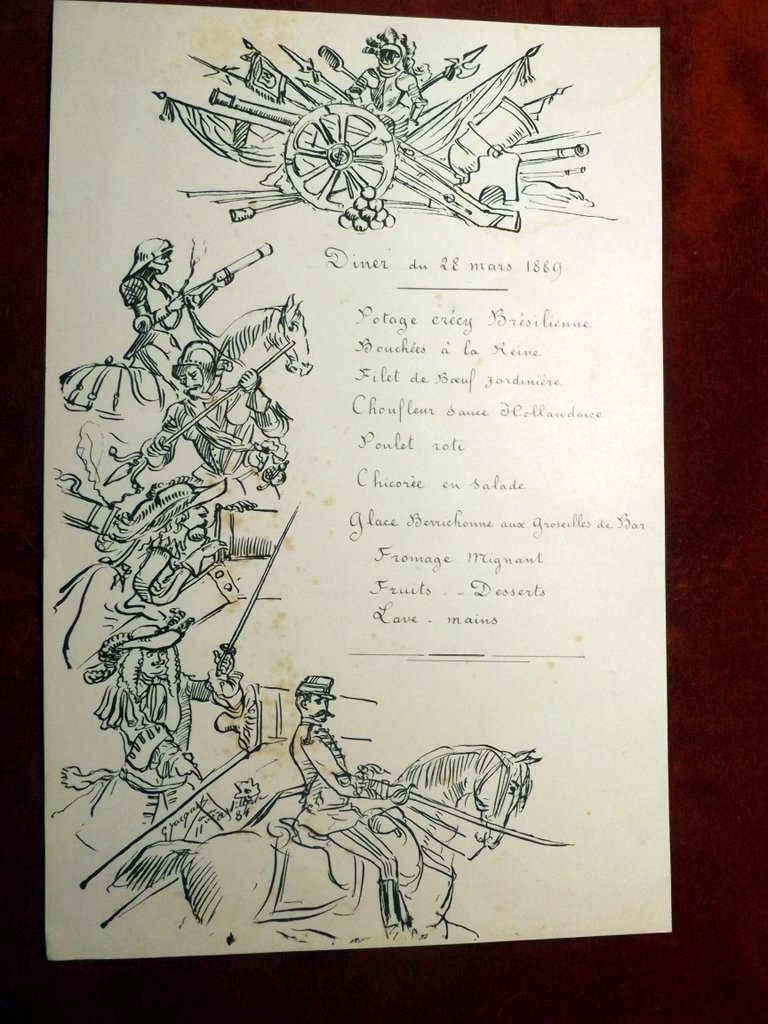 Diner du 28 mars 1889
Potage crécy Brésilienne
Bouchées à la Reine
Filet de Bœuf Jardinière
Choufleur Sauce Hollandaise
Poulet roti
Chicorée en Salade
Glace Berrichonne aux Groseilles de Bar
Fromage Mignant
Fruits - Desserts
Lave - mains